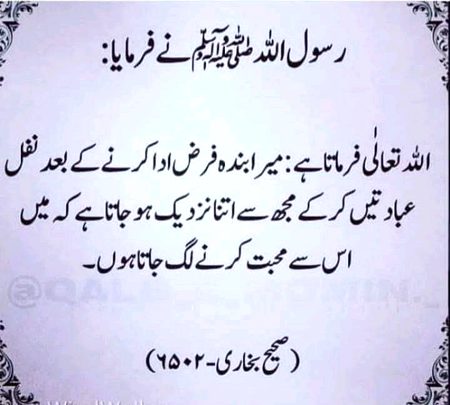 رسول اللہ ﷺ نے فرمایا:
اللہ تعالٰی فرماتا ہے: میرا بندہ فرض ادا کرنے کے بعد نفل
عبادتیں کر کے مجھ سے اتنا نزدیک ہو جاتا ہے کہ میں
اس سے محبت کرنے لگ جاتا ہوں۔
(صحیح بخاری-۶۵۰۲)